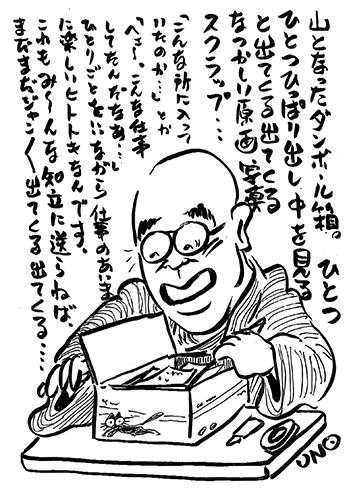 山となったダンボール箱。ひとつ
ひとつひっぱり出し中を見る
と出てくる出てくる
なつかしい原画、写真
スクラップ…
「こんな所に入って
いたのか…」とか
「へぇ〜、こんな仕事
してたんだなぁ…」
ひとりごとをいいながら仕事のあいま
に楽しいヒトトキなんです。
これもみ〜んな知立に送らねば、
まだまだジャンジャン出てくる出てくる…
UNO